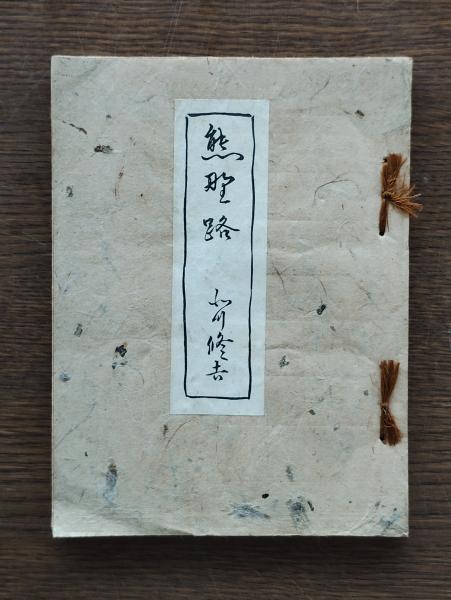 熊野路
小川修吉